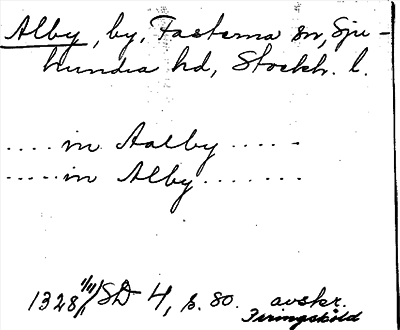 Alby, by, Fasterna sn, Sju-
hundra hd, Stockh. l.
..... in Aalby .....
..... in Alby .......
1328 1/11 SD 4, s. 80. avskr.
Peringskiöld